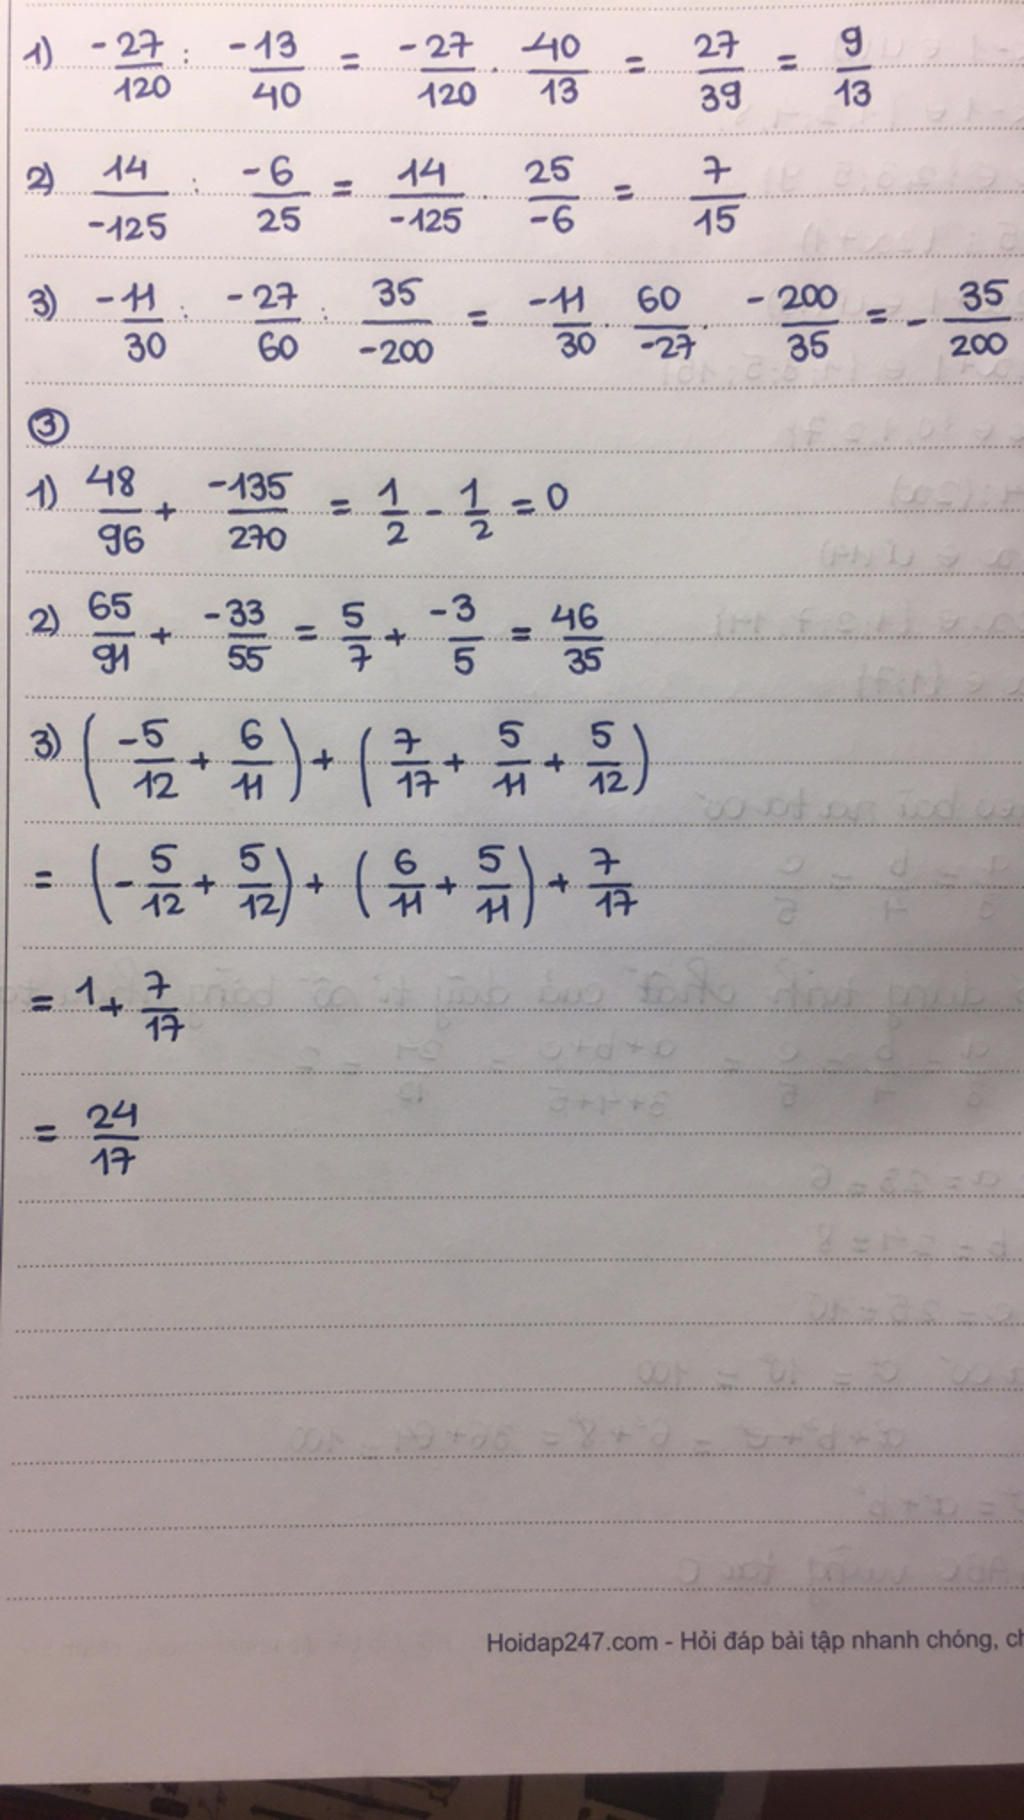 1) -27/120 : -13/40 = -27/120 . -40/13 = 27/39 = 9/13
2) 14/-125 : -6/25 = 14/-125 . 25/-6 = 7/15
3) -11/30 : -27/60 : 35/-200 = -11/30 . 60/-27 . -200/35 = - 35/200
③
1) 48/96 + -135/270 = 1/2 - 1/2 = 0
2) 65/91 + -33/55 = 5/7 + -3/5 = 46/35
3) (-5/12 + 6/11) + (7/17 + 5/11 + 5/12)
= (-5/12 + 5/12) + (6/11 + 5/11) + 7/17
= 1 + 7/17
= 24/17
Hoidap247.com - Hỏi đáp bài tập nhanh chóng, ch